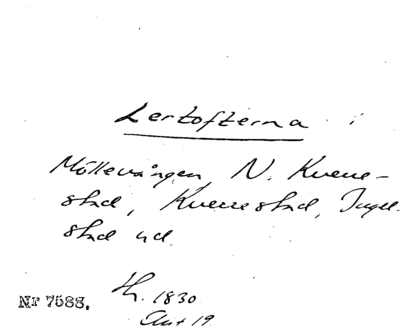 Lertofterna i
Möllevången, N. Kverre-
stad, Kverrestad, Ingel-
stad hd.
Nr 7588.
Th. 1830
Akt 19